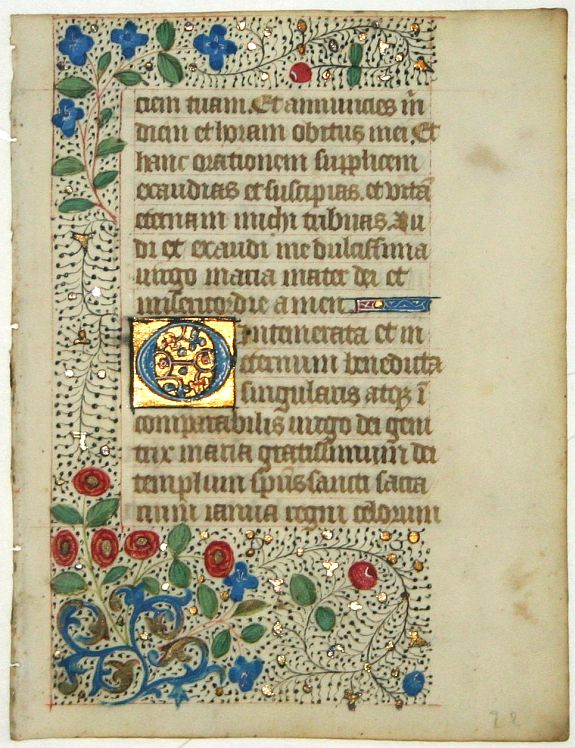 ciem tuam. Et annuncies m̄
diem et horam obitus mei. Et
hanc orationem supplicem
exaudias et suscipias. et vitā
eternam michi tribuas. Au
di et exaudi me dulcissima
uirgo maria mater dei et
misericordie amen
O intemerata et in
eternum benedicta
singularis atqꝫ ī
comparabilis uirgo dei geni
trix maria gratissimum dei
templum spūs sancti sacra
rium ianua regni celorum
22